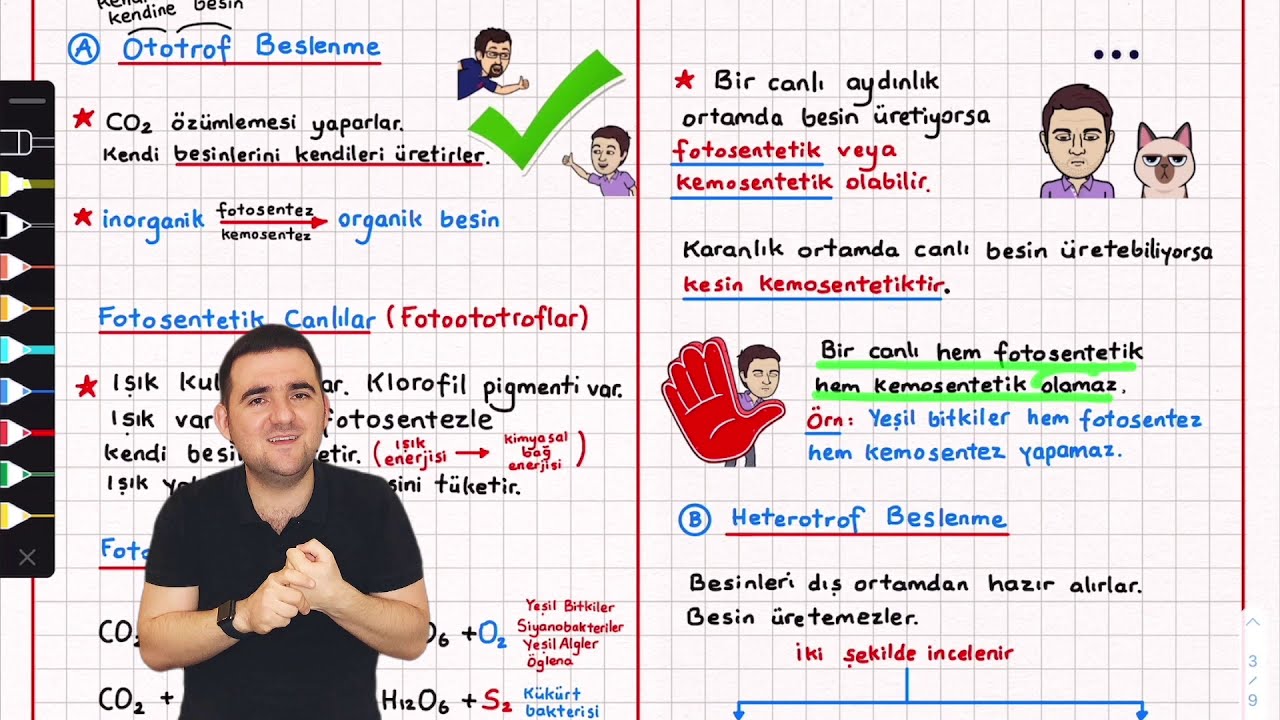 kendine besin
A Ototrof Beslenme
★ CO2 özümlemesi yaparlar.
Kendi besinlerini kendileri üretirler.
★ inorganik fotosentez organik besin
kemosentez
Fotosentetik Canlılar (Fotoototroflar)
★ Işık Klorofil pigmenti var.
Işık var fotosentezle
kendi
(Işık enerjisi → kimyasal bağ enerjisi)
Işık tüketir.
CO2 + O2
Yeşil Bitkiler
Siyanobakteriler
Yeşil Algler
Öglena
CO2 + H12O6 + S2
Kükürt
bakterisi
★ Bir canlı aydınlık
ortamda besin üretiyorsa
fotosentetik veya
kemosentetik olabilir.
Karanlık ortamda canlı besin üretebiliyorsa
kesin kemosentetiktir.
Bir canlı hem fotosentetik
hem kemosentetik olamaz.
Örn: Yeşil bitkiler hem fotosentez
hem kemosentez yapamaz.
B Heterotrof Beslenme
Besinleri dış ortamdan hazır alırlar.
Besin üretemezler.
iki şekilde incelenir
3
/
9